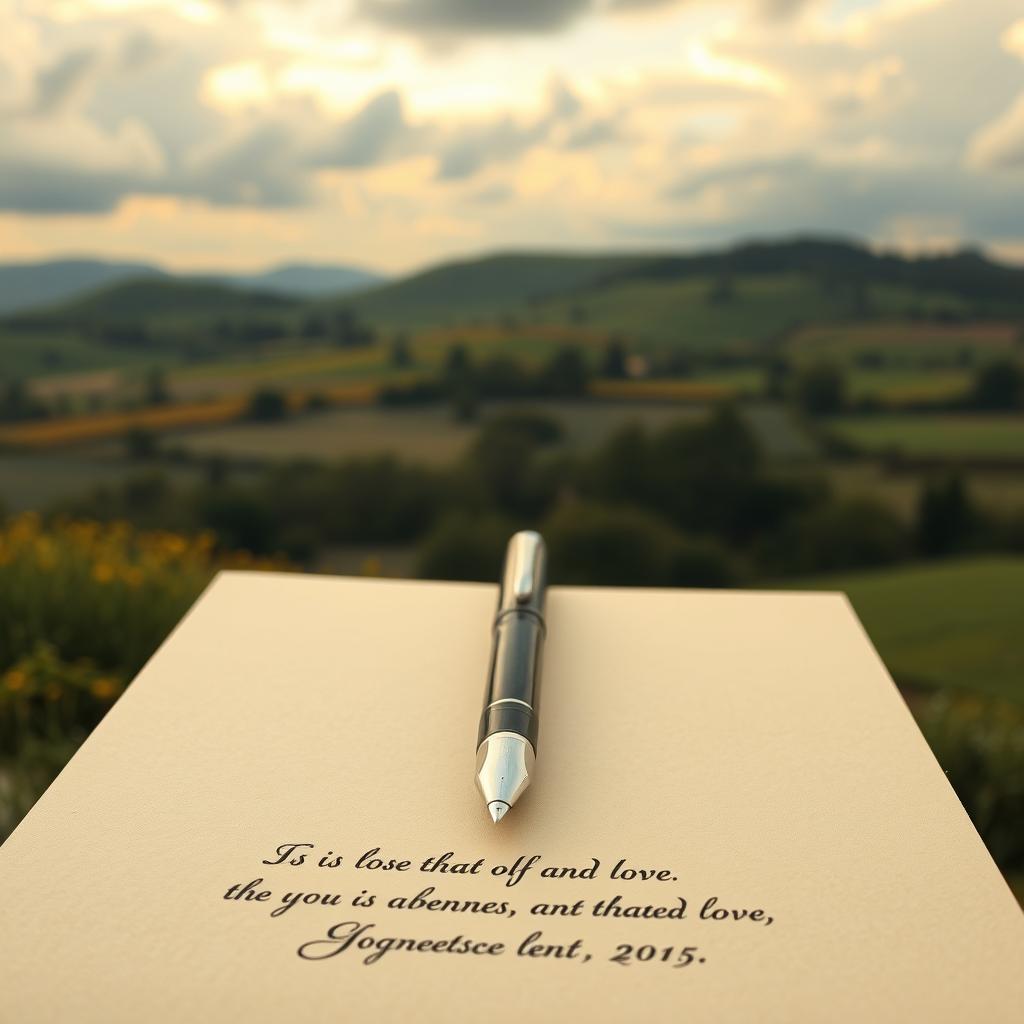 Is is lose that olf and love.
the you is abennes, ant thated love,
Gogneetsce lent, 2015.